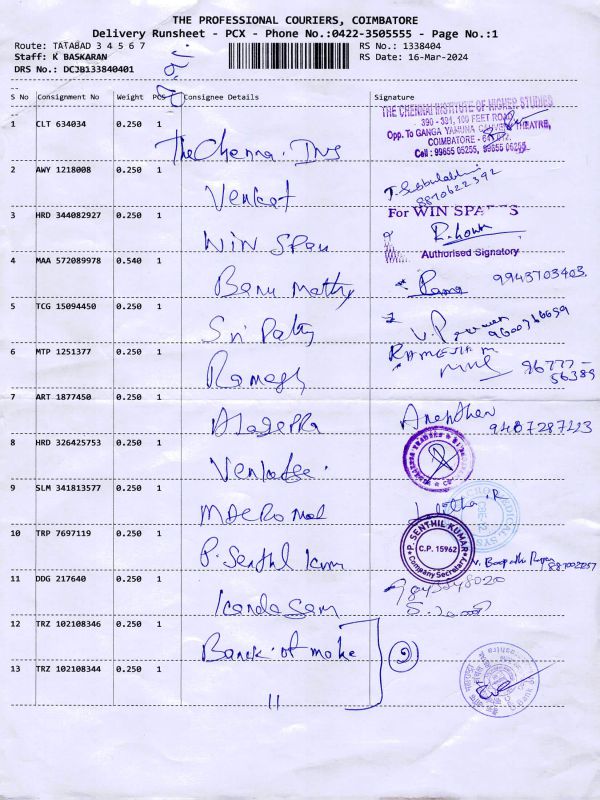 THE PROFESSIONAL COURIERS, COIMBATORE
Delivery Runsheet - PCX - Phone No.:0422-3505555 - Page No.:1
Route: TATABAD 3 4 5 6 7
RS No.: 1338404
Staff: K BASKARAN
RS Date: 16-Mar-2024
DRS No.: DCJB133840401
S No Consignment No Weight PCS Consignee Details Signature
1 CLT 634034 0.250 1
THE CHENNAI INSTITUTE OF HIGHER STUDIES
390 - 391, 100 FEET ROAD
Opp. To GANGA YAMUNA CAUVERY THEATRE,
COIMBATORE - 641 012.
Cell : 99655 05255, 99655 06255
The Chennai. Ins
2 AWY 1218008 0.250 1
8870622392
Venkat
3 HRD 344082927 0.250 1
For WIN SPARES
Authorised Signatory
Win Span
4 MAA 572089978 0.540 1
Rama 9943703403
Banu Mathy
5 TCG 15094450 0.250 1
Sri Patty
6 MTP 1251377 0.250 1
RAMESH M
96777-
56389
Ramesh
7 ART 1877450 0.250 1
Alageppa
8 HRD 326425753 0.250 1
Venkatje.
9 SLM 341813577 0.250 1
Lalitha.R
Macro mal
10 TRP 7697119 0.250 1
P. SENTHIL KUMAR
C.P. 15962
Company Secretary
P. Senthil kum
11 DDG 217640 0.250 1
Kandasam
12 TRZ 102108346 0.250 1
Bank of make
2
13 TRZ 102108344 0.250 1
11